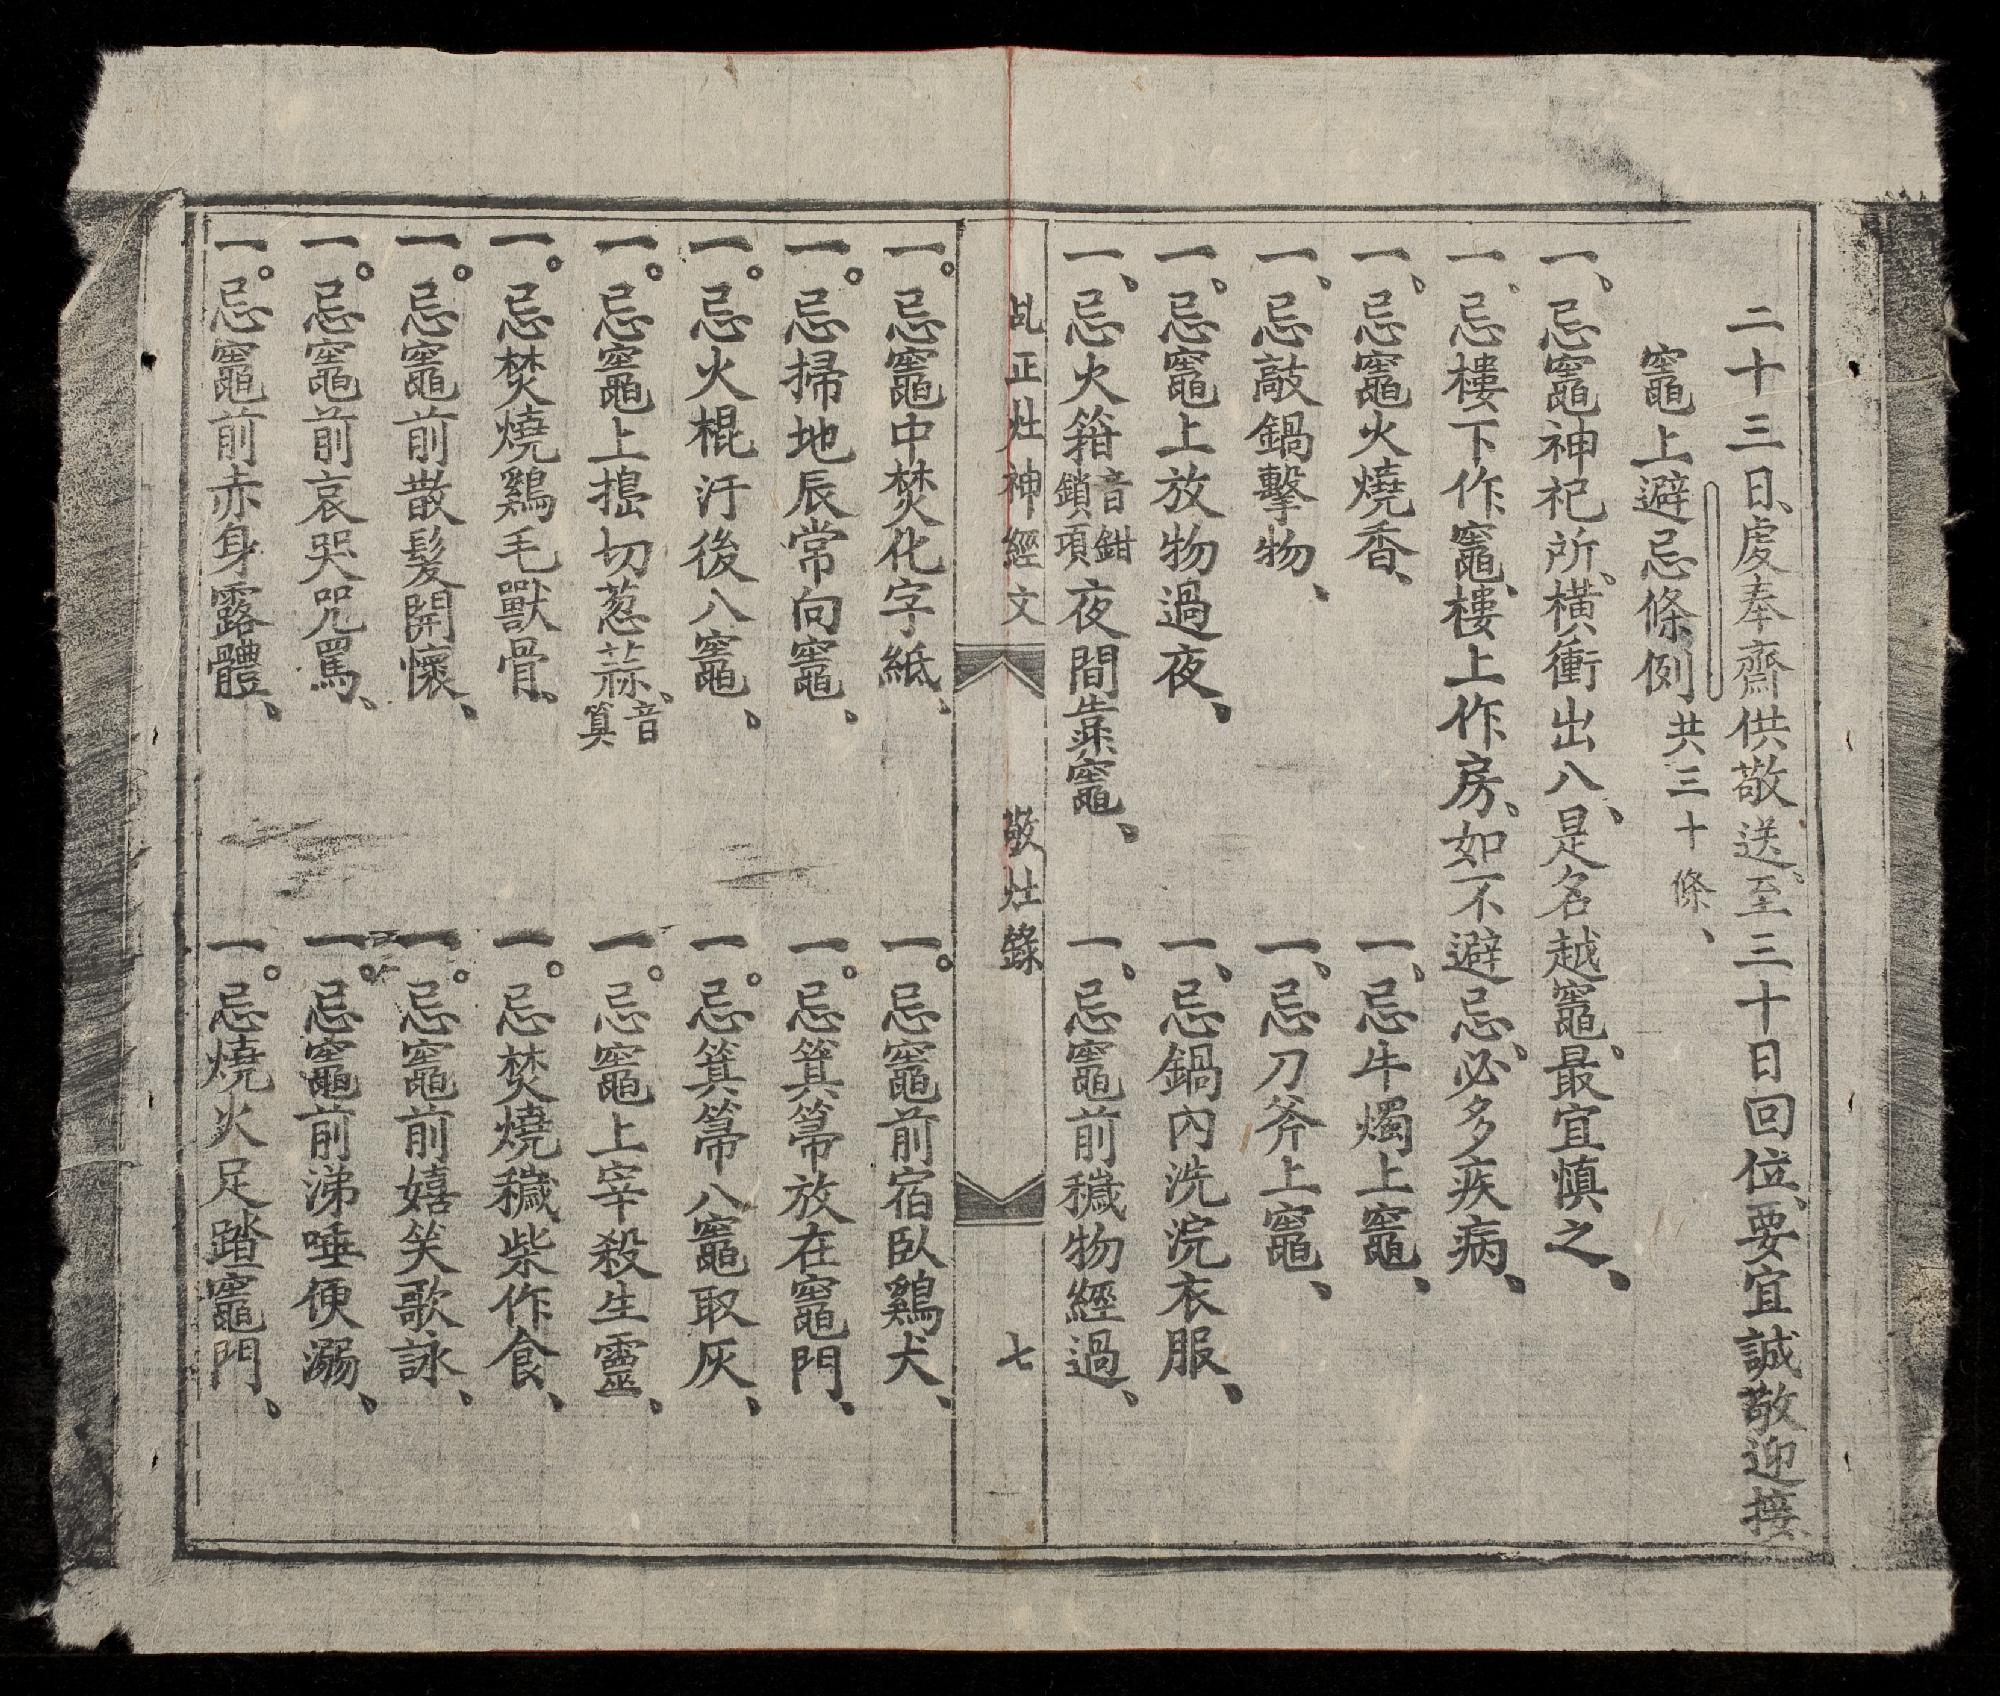 二十三日、虔奉齋供敬送。至三十日回位、要宜誠敬迎接、
竈上避忌條例共三十條、
一、忌竈神祀所。橫衝出入、是名越竈。最宜慎之、
一、忌樓下作竈、樓上作房。如不避忌。必多疾病、
一、忌竈火燒香、
一、忌牛燭上竈、
一、忌敲鍋擊物、
一、忌刀斧上竈、
一、忌竈上放物過夜、
一、忌鍋內洗浣衣服、
一、忌火箝音鉗鎖項夜間靠竈、
一、忌竈前穢物經過、
乩正灶神經文
敬灶錄
七
一。忌竈中焚化字紙、
一。忌竈前宿臥鷄犬、
一。忌掃地辰常向竈、
一。忌箕箒放在竈門、
一。忌火棍汙後入竈、
一。忌箕箒入竈取灰、
一。忌竈上搗切葱蒜、音筭
一。忌竈上宰殺生靈、
一。忌焚燒鷄毛獸骨、
一。忌焚燒穢柴作食、
一。忌竈前散髮開懷、
一。忌竈前嬉笑歌詠、
一。忌竈前哀哭咒罵、
一。忌竈前涕唾便溺、
一。忌竈前赤身露體、
一。忌燒火足踏竈門、